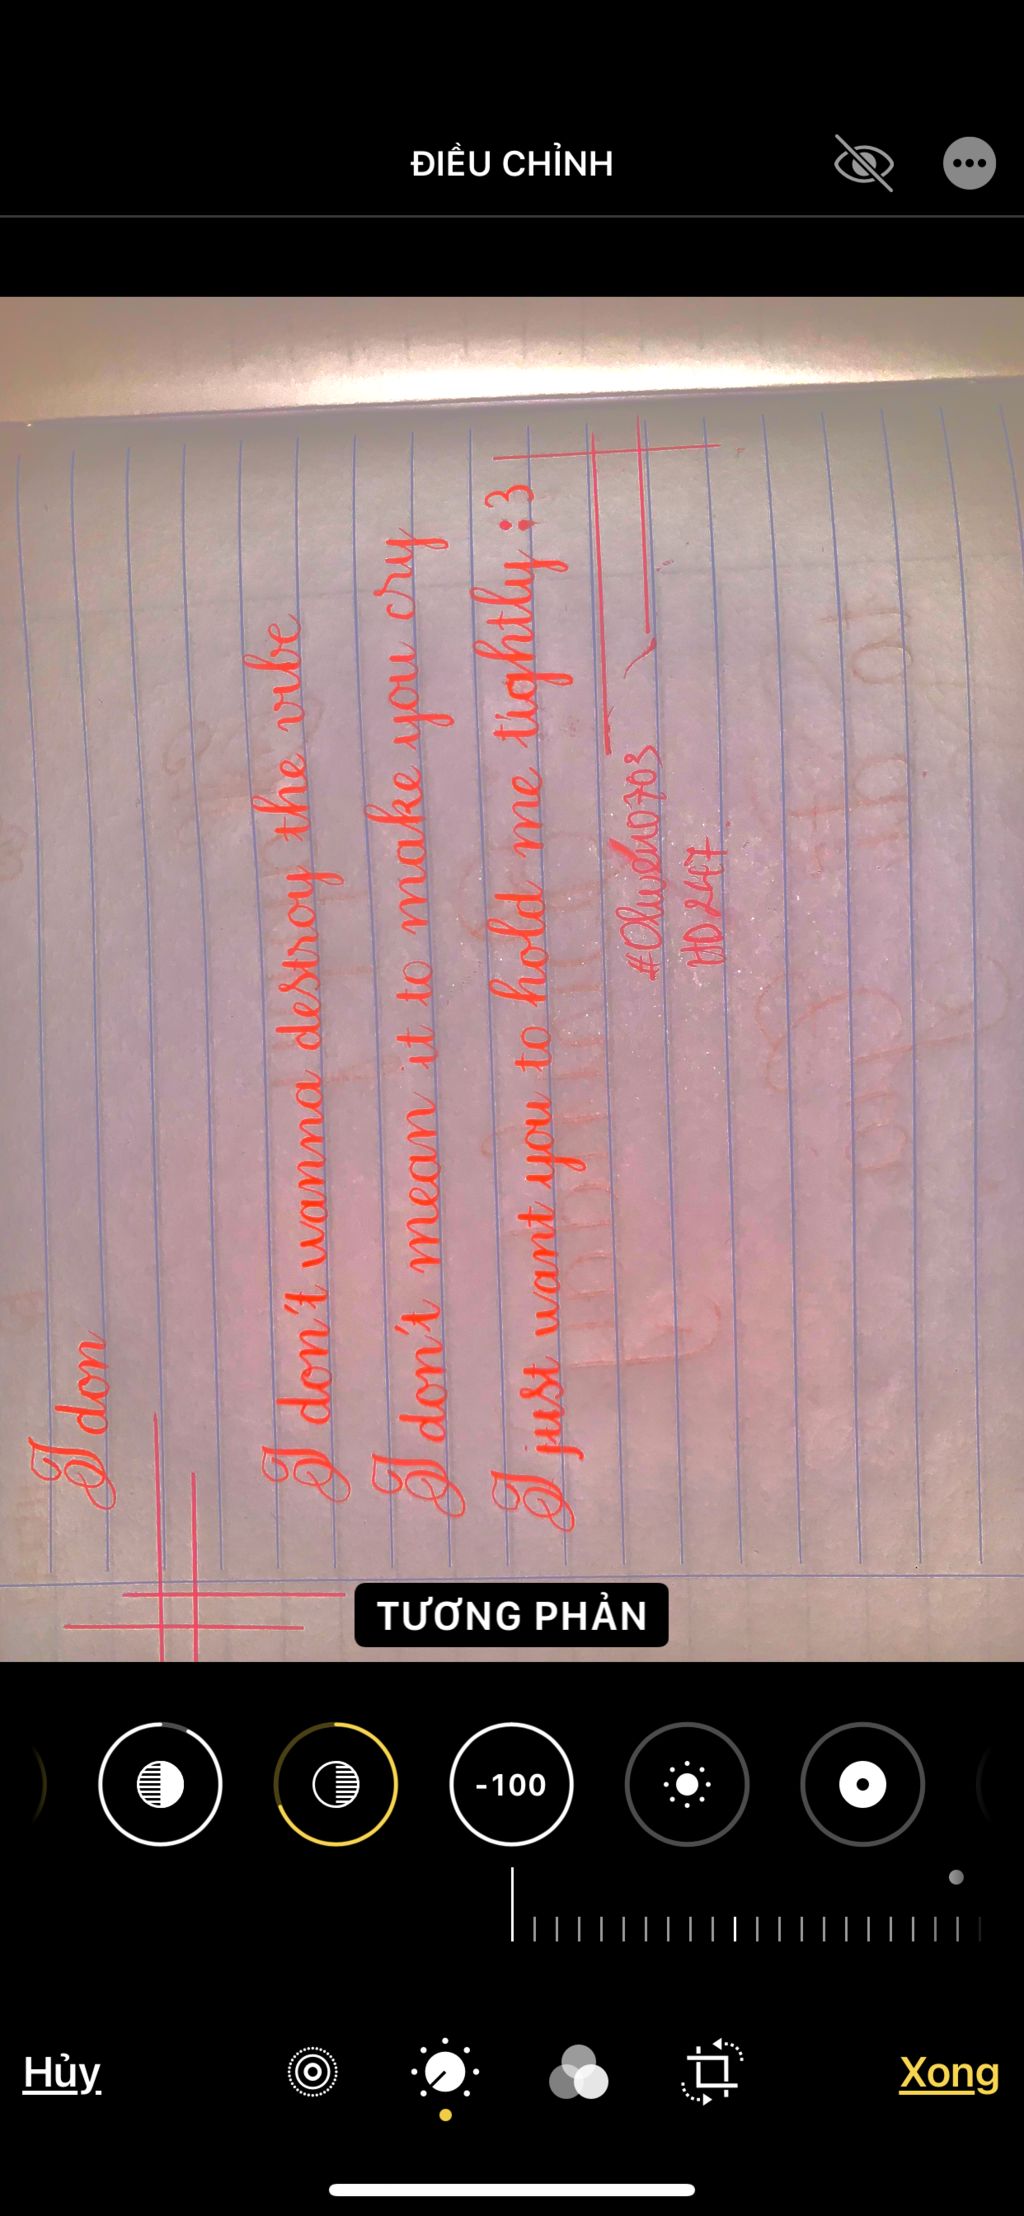 ĐIỀU CHỈNH
I don
I don't wanna destroy the vibe
I don't mean it to make you cry
I just want you to hold me tightly :3
HD247
TƯƠNG PHẢN
-100
Hủy
Xong